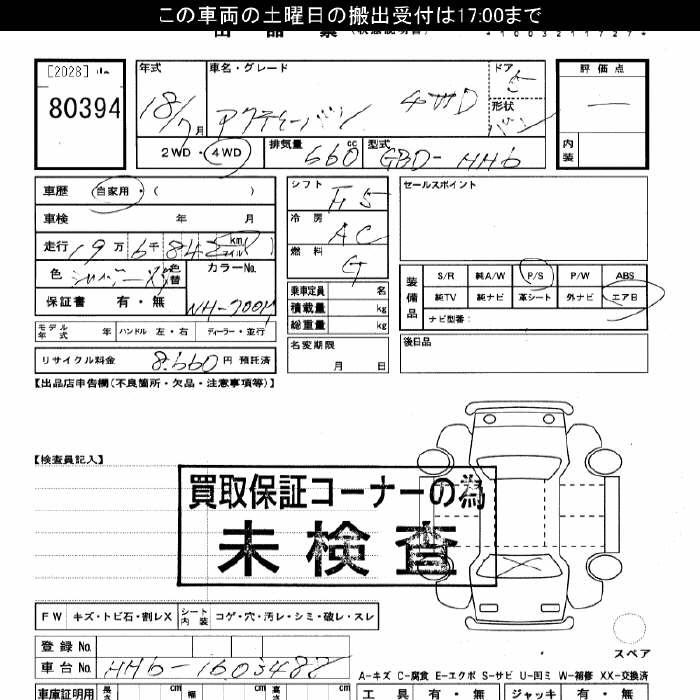 この車両の土曜日の搬出受付は17:00まで
[2028]
80394
年式 車名・グレード ドア 5 評価点
18/7月 アクティーバン 4WD 形状 バン
2WD・4WD 排気量 660 cc 型式 GBD-HH6 内装
車歴 自家用・( ) シフト F5 セールスポイント
車検 年 月 冷房 AC
走行 19万6千842 km マイル 燃料 G
色 シルバーM 色替 カラーNo. 乗車定員 名 装備品 S/R 純A/W P/S P/W ABS
保証書 有・無 NH-700M 積載量 kg 純TV 純ナビ 革シート 外ナビ エアB
総重量 kg ナビ型番:
モデル年式 年 ハンドル 左・右 ディーラー・並行 名変期限 月 日 後日品
リサイクル料金 8,660円 預託済
【出品店申告欄(不良箇所・欠品・注意事項等)】
【検査員記入】
買取保証コーナーの為
未検査
FW キズ・トビ石・割レX シート内装 コゲ・穴・汚レ・シミ・破レ・スレ
登録No.
スペア
車台No. HH6-1603487
A-キズ C-腐食 E-エクボ S-サビ U-凹ミ W-補修 XX-交換済
車庫証明用 長さ cm 幅 cm 高さ cm 工具 有・無 ジャッキ 有・無